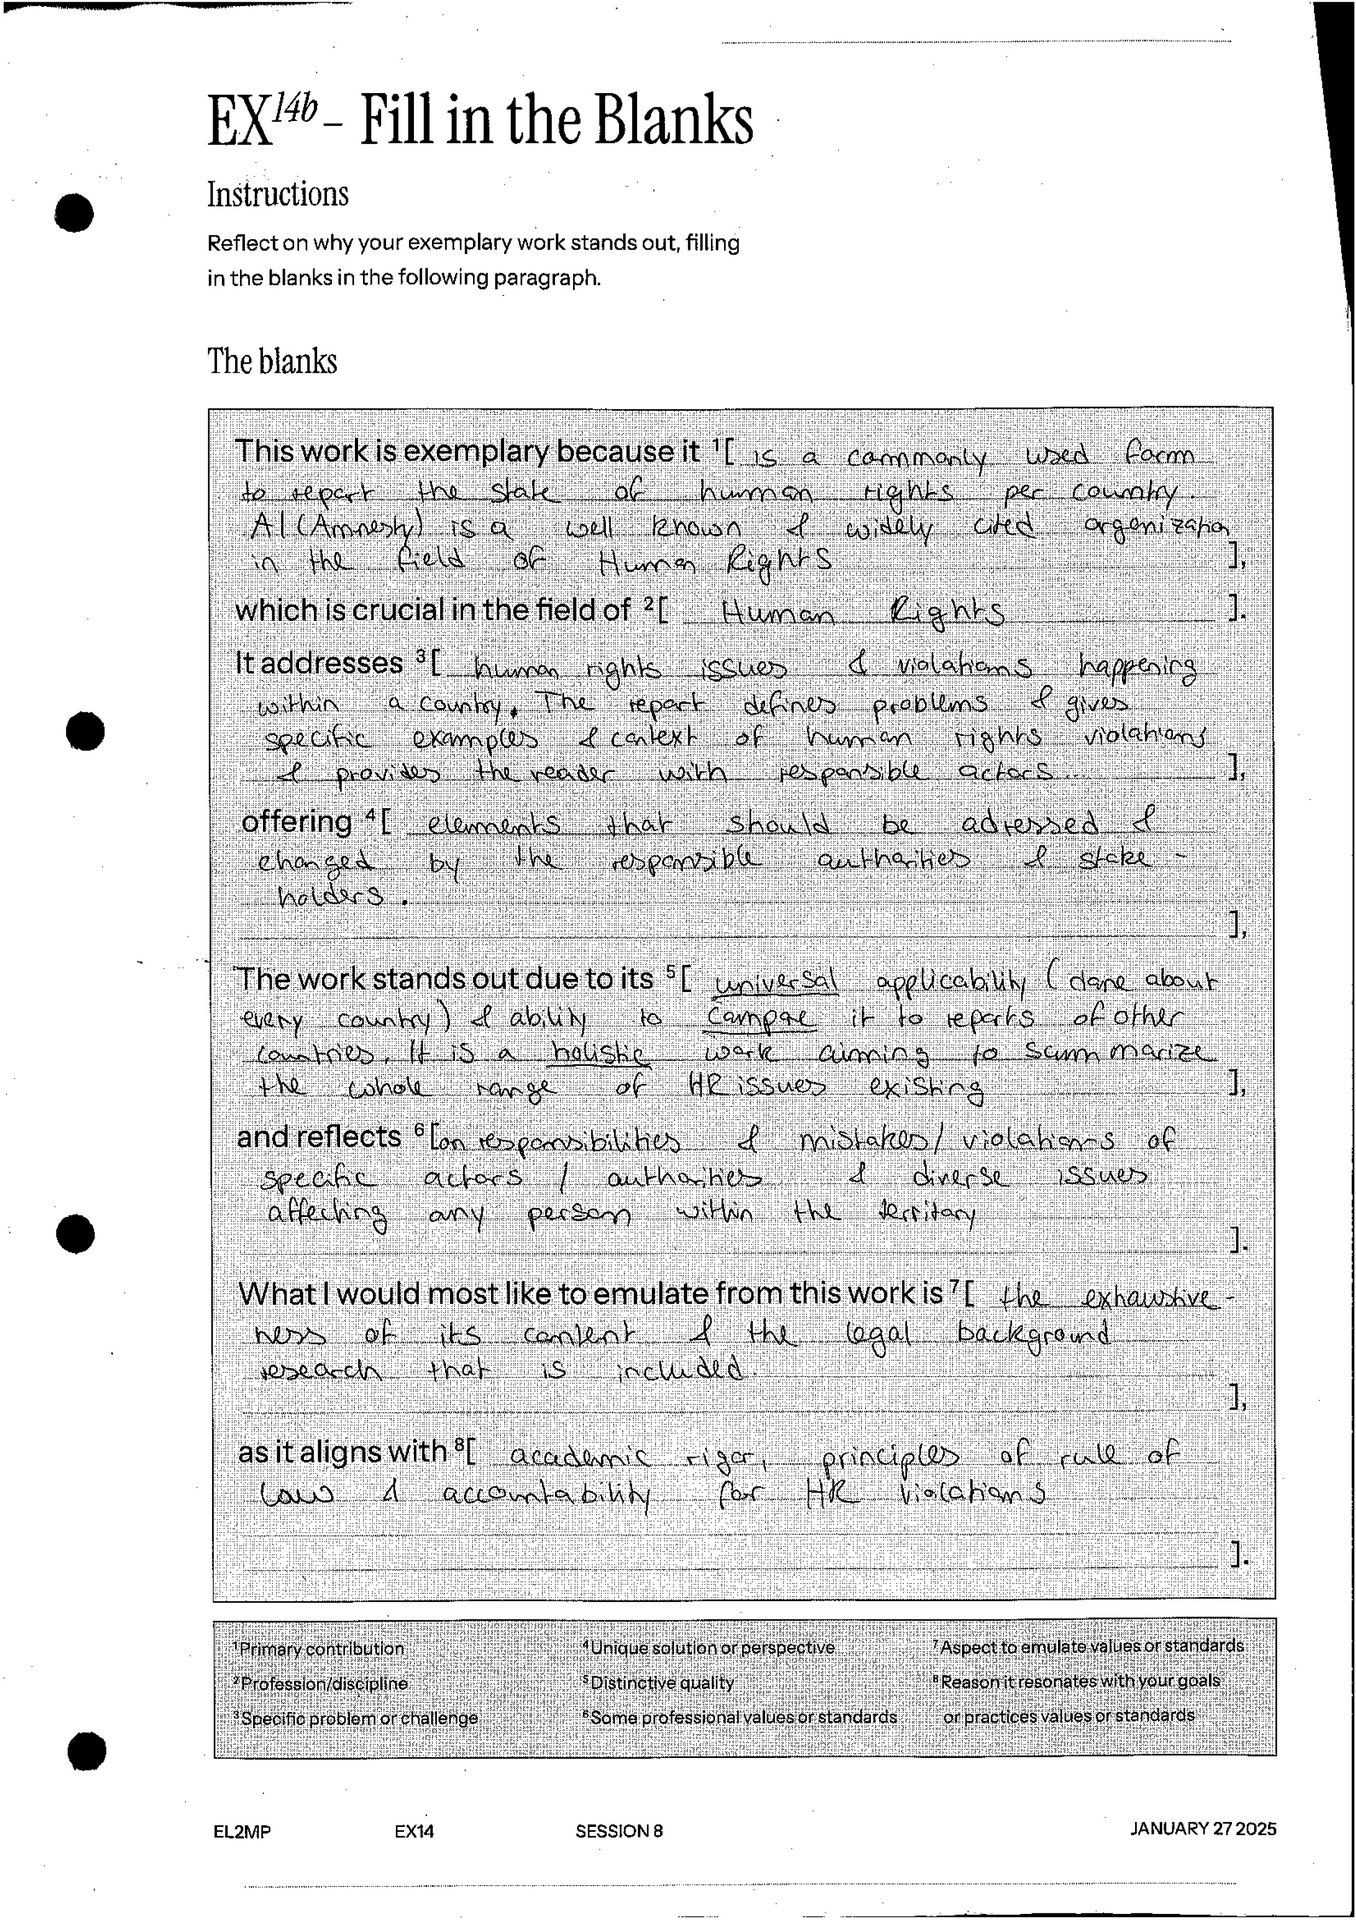 EX14b – Fill in the Blanks
Instructions
Reflect on why your exemplary work stands out, filling
in the blanks in the following paragraph.
The blanks
This work is exemplary because it ¹[ is a commonly used form
to report the state of human rights per country.
AI (Amnesty) is a well known & widely cited organization
in the field of Human Rights ],
which is crucial in the field of ²[ Human Rights ].
It addresses ³[ human rights issues & violations happening
within a country. The report defines problems & gives
specific examples & context of human rights violations
& provides the reader with responsible actors ],
offering ⁴[ elements that should be adressed &
changed by the responsible authorities & stake-
holders.
],
The work stands out due to its ⁵[ universal applicability (done about
every country) & ability to compare it to reports of other
countries. It is a holistic work aiming to summarize
the whole range of HR issues existing ],
and reflects ⁶[on responsibilities & mistakes/ violations of
specific actors / authorities & diverse issues
affecting any person within the territory
].
What I would most like to emulate from this work is ⁷[ the exhaustive-
ness of its content & the legal background
research that is included.
],
as it aligns with ⁸[ academic rigor, principles of rule of
law & accountability for HR violations
].
¹Primary contribution ⁴Unique solution or perspective ⁷Aspect to emulate values or standards
²Profession/discipline ⁵Distinctive quality ⁸Reason it resonates with your goals
³Specific problem or challenge ⁶Some professional values or standards or practices values or standards
EL2MP EX14 SESSION 8 JANUARY 27 2025